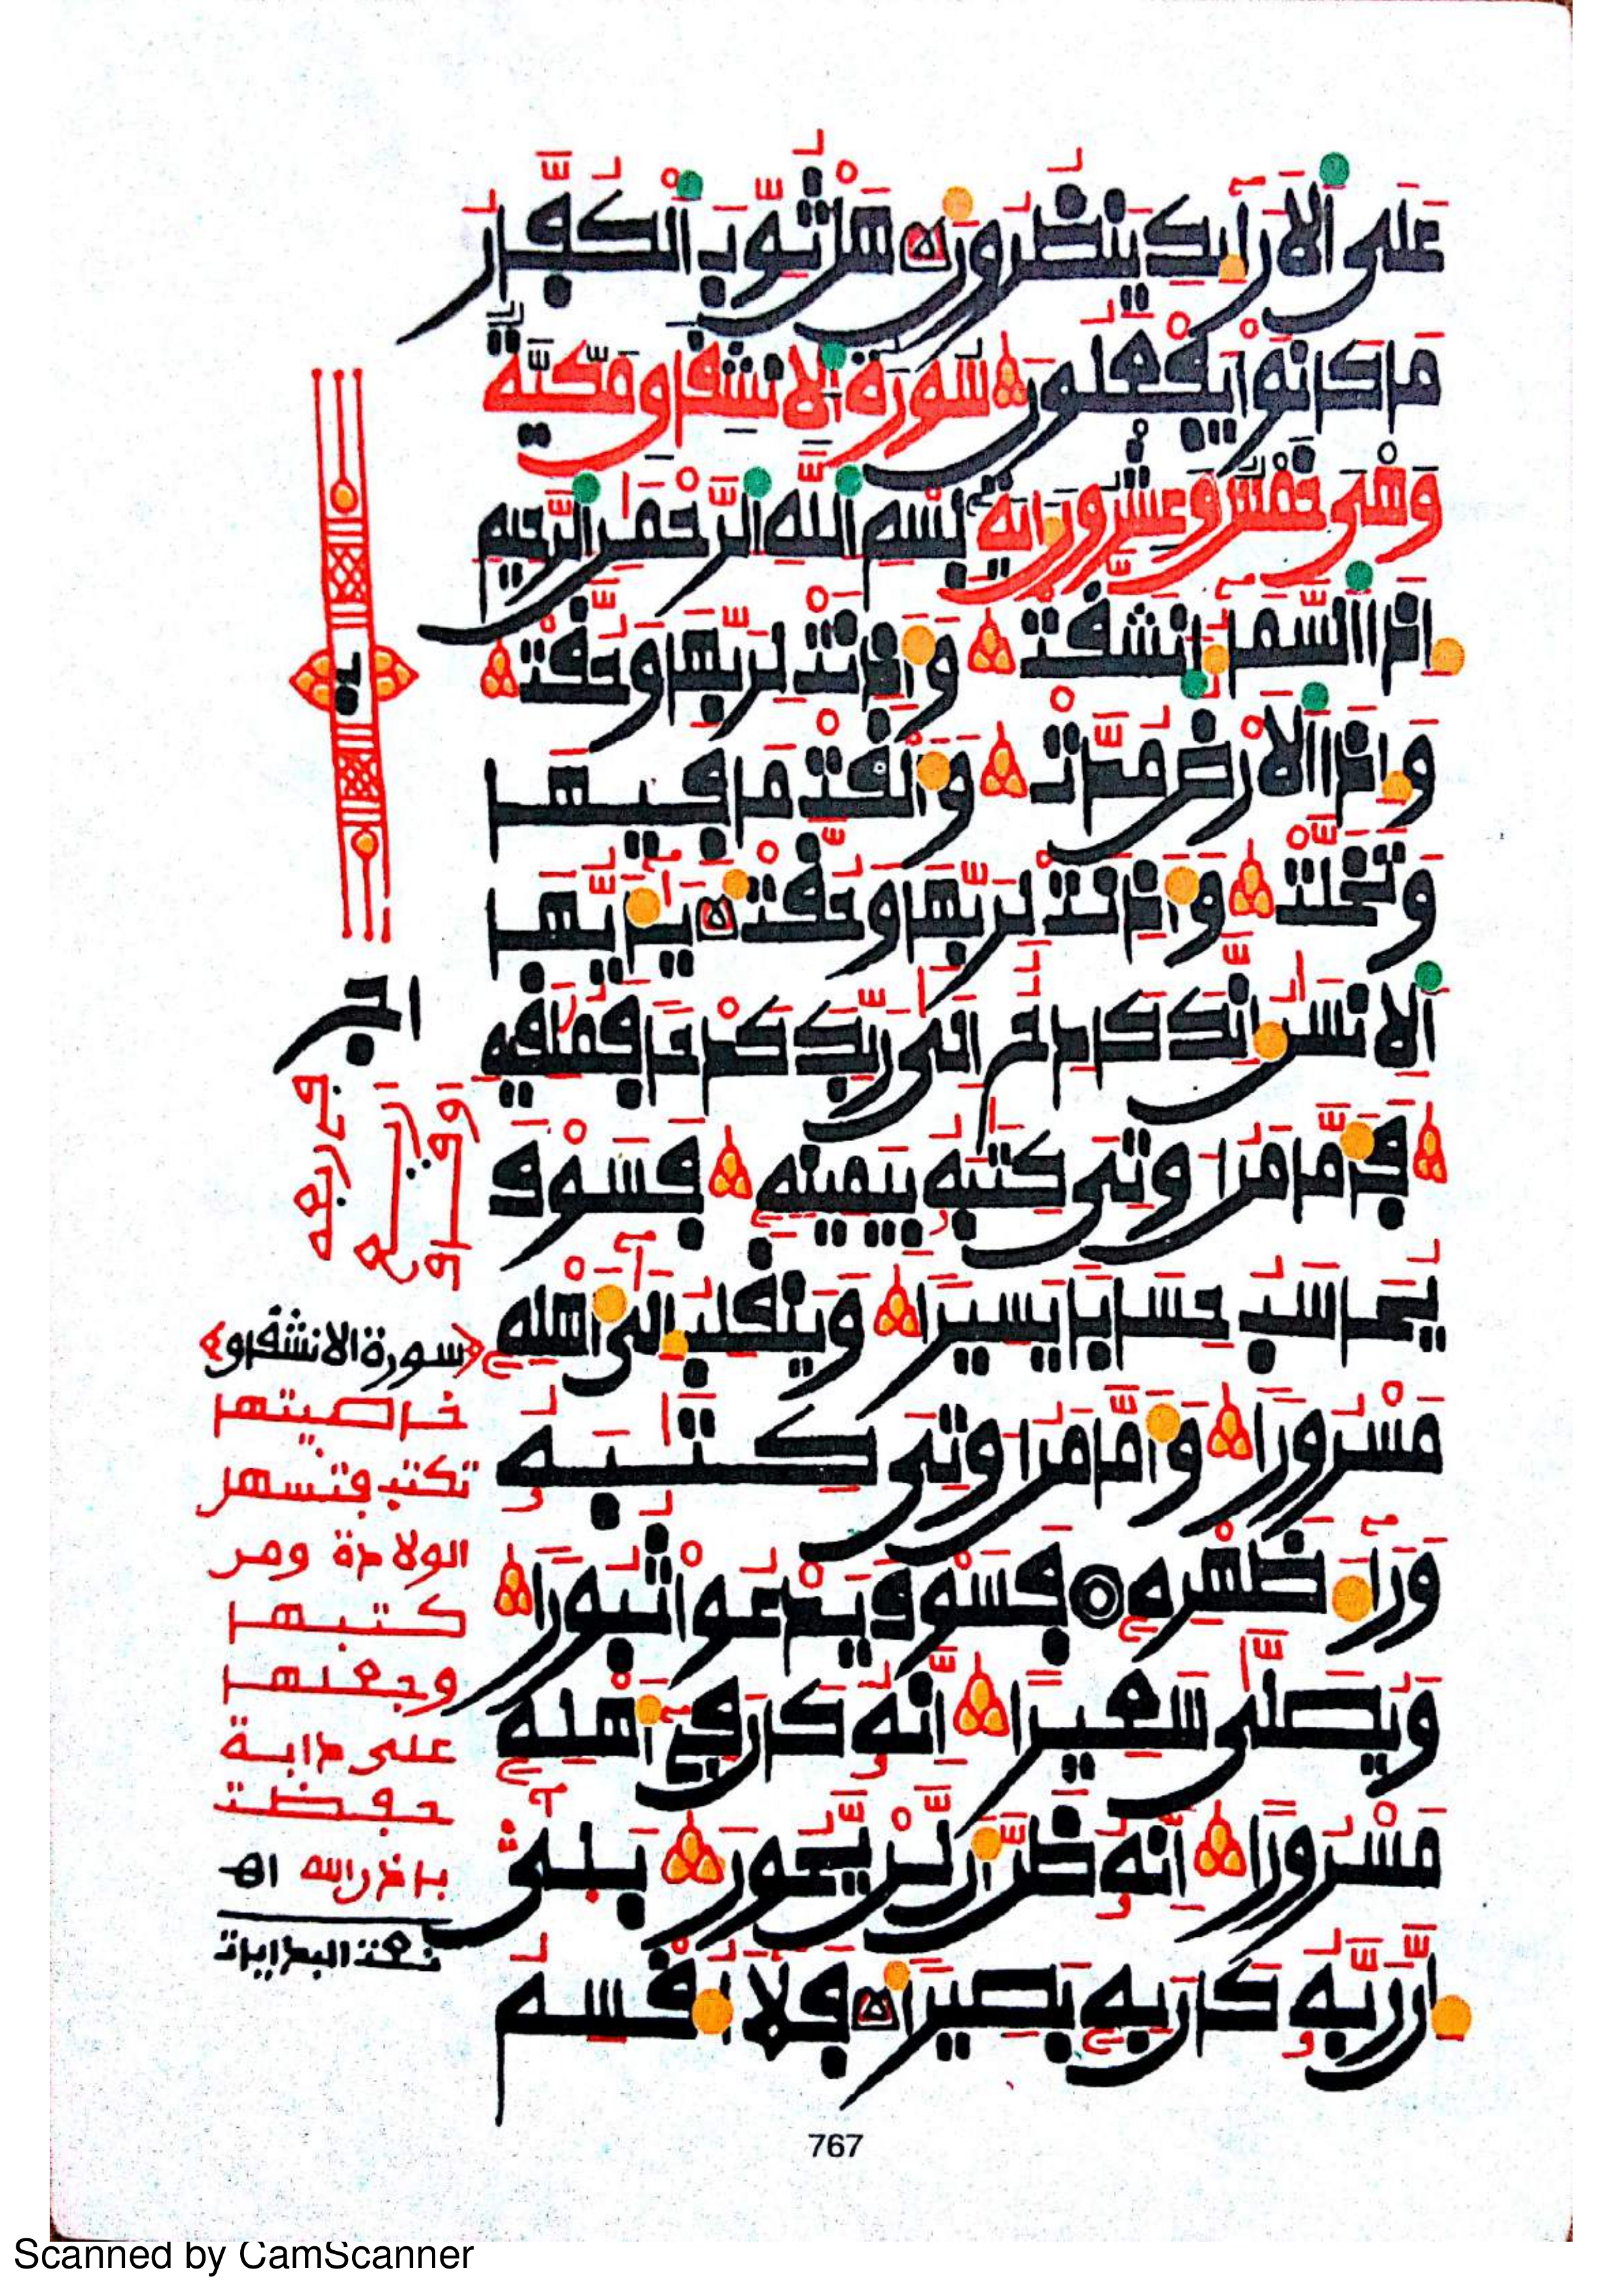 عَلَى ٱلَارَآئِكِ يَنظُرُونَ هَلْ ثُوِّبَ ٱلْكُفَّارُ
مَا كَانُواْ يَفْعَلُونَ سُورَةُ ٱلِانشِقَاقِ مَكِّيَّةٌ
وَهْىَ خَمْسٌ وَعِشْرُونَ ءَايَةً بِسْمِ ٱللَّهِ ٱلرَّحْمَٰنِ ٱلرَّحِيمِ
إِذَا ٱلسَّمَآءُ ٱنشَقَّتْ وَأَذِنَتْ لِرَبِّهَا وَحُقَّتْ
وَإِذَا ٱلَارْضُ مُدَّتْ وَأَلْقَتْ مَا فِيهَا
وَتَخَلَّتْ وَأَذِنَتْ لِرَبِّهَا وَحُقَّتْ يَٰٓأَيُّهَا
ٱلِانسَٰنُ إِنَّكَ كَادِحٌ إِلَىٰ رَبِّكَ كَدْحًا فَمُلَٰقِيهِ
فَأَمَّا مَنُ اوتِىَ كِتَٰبَهُۥ بِيَمِينِهِۦ فَسَوْفَ
يُحَاسَبُ حِسَابًا يَسِيرًا وَيَنقَلِبُ إِلَىٰٓ أَهْلِهِۦ
مَسْرُورًا وَأَمَّا مَنُ اوتِىَ كِتَٰبَهُۥ
وَرَآءَ ظَهْرِهِۦ فَسَوْفَ يَدْعُواْ ثُبُورًا
وَيُصَلَّىٰ سَعِيرًا إِنَّهُۥ كَانَ فِىٓ أَهْلِهِۦ
مَسْرُورًا إِنَّهُۥ ظَنَّ أَن لَّنْ يَّحُورَ بَلَىٰٓ
إِنَّ رَبَّهُۥ كَانَ بِهِۦ بَصِيرًا فَلَآ أُقْسِمُ
سورة الانشقاق
خاصيتها
تكتب فتسهل
الولادة ومن
كتبها
وجعلها
على دابة
حفظت
باذن الله اهـ
767
Scanned by CamScanner